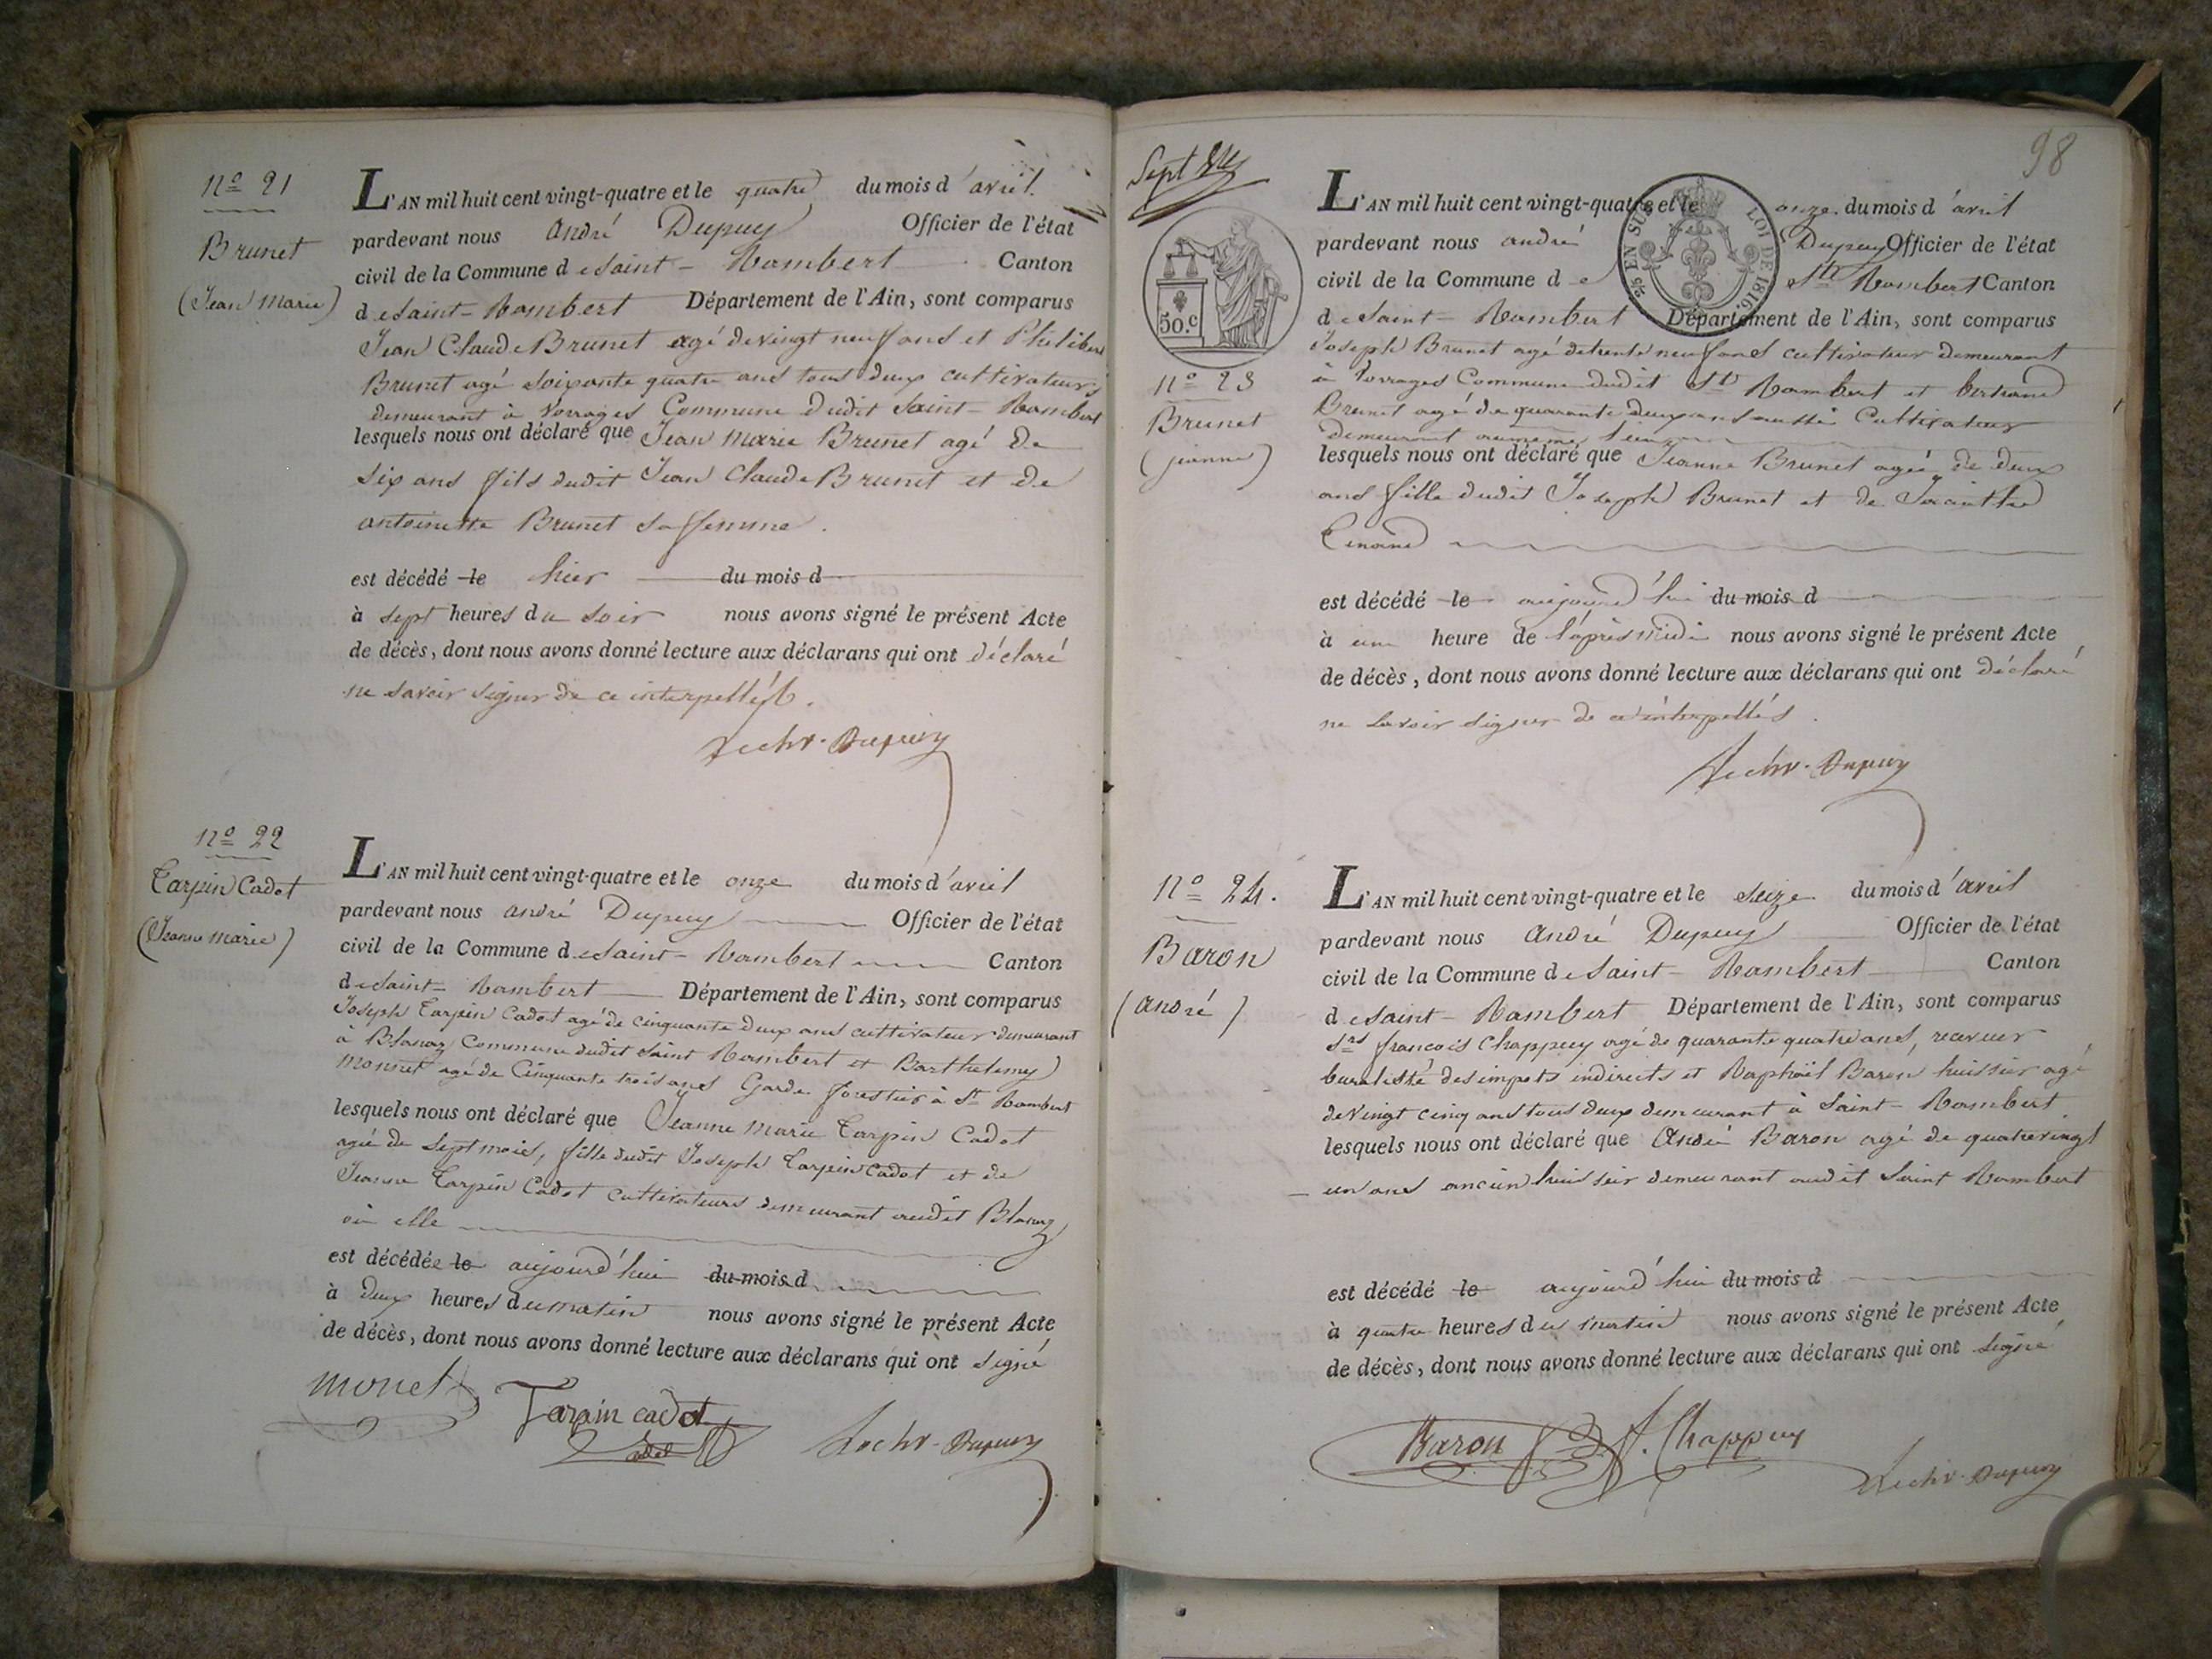 nº 21
Brunet
(Jean Marie)
L'AN mil huit cent vingt-quatre et le quatre du mois d'avril
pardevant nous André Dupuy Officier de l'état
civil de la Commune de Saint-Rambert Canton
de Saint-Rambert Département de l'Ain, sont comparus
Jean Claude Brunet agé de vingt neuf ans et Philibert
Brunet agé soixante quatre ans tous deux cultivateurs
demeurant à Vorrages Commune dudit Saint-Rambert
lesquels nous ont déclaré que Jean Marie Brunet agé de
six ans fils dudit Jean Claude Brunet et de
antoinette Brunet sa femme.
est décédé le hier du mois d
à sept heures du soir nous avons signé le présent Acte
de décès, dont nous avons donné lecture aux déclarans qui ont déclaré
ne savoir signer de ce interpellés.
Dupuy
nº 22
Tarpin Cadot
(Jeanne Marie)
L'AN mil huit cent vingt-quatre et le onze du mois d'avril
pardevant nous andré Dupuy Officier de l'état
civil de la Commune de Saint-Rambert Canton
de Saint-Rambert Département de l'Ain, sont comparus
Joseph Tarpin Cadot agé de cinquante deux ans cultivateur demeurant
à Blanaz Commune dudit Saint Rambert et Barthelemy
Monnet agé de Cinquante trois ans Garde forestier à St Rambert
lesquels nous ont déclaré que Jeanne Marie Tarpin Cadot
agée de sept mois, fille dudit Joseph Tarpin Cadot et de
Jeanne Tarpin Cadot cultivateurs demeurant audit Blanaz
où elle
est décédée le aujourd'hui du mois d
à deux heures du matin nous avons signé le présent Acte
de décès, dont nous avons donné lecture aux déclarans qui ont signé
monet Tarpin cadot Dupuy
cadot
98
Sept
50.c
EN SUS LOI DE 1816.
nº 23
Brunet
(jeanne)
L'AN mil huit cent vingt-quatre et le onze du mois d'avril
pardevant nous andré Dupuy Officier de l'état
civil de la Commune de St Rambert Canton
de Saint-Rambert Département de l'Ain, sont comparus
Joseph Brunet agé de trente neuf ans cultivateur demeurant
à Vorrages Commune dudit St Rambert et bertrand
Brunet agé de quarante deux ans aussi Cultivateur
Demeurant au même lieu
lesquels nous ont déclaré que Jeanne Brunet agée de deux
ans fille dudit Joseph Brunet et de Jacinthe
est décédé le aujourd'hui du mois d
à une heure de l'après midi nous avons signé le présent Acte
de décès, dont nous avons donné lecture aux déclarans qui ont déclaré
ne savoir signer de ce interpellés.
Dupuy
nº 24.
Baron
(andré)
L'AN mil huit cent vingt-quatre et le seize du mois d'avril
pardevant nous André Dupuy Officier de l'état
civil de la Commune de Saint-Rambert Canton
de Saint-Rambert Département de l'Ain, sont comparus
Srs francois Chappuy agé de quarante quatre ans, receveur
buraliste des impots indirects et Raphaël Baron huissier agé
de vingt cinq ans tous deux demeurant à Saint-Rambert.
lesquels nous ont déclaré que André Baron agé de quatrevingt
un ans ancien huissier demeurant audit Saint Rambert
est décédé le aujourd'hui du mois d
à quatre heures du matin nous avons signé le présent Acte
de décès, dont nous avons donné lecture aux déclarans qui ont signé
Baron f. Chappuy Dupuy